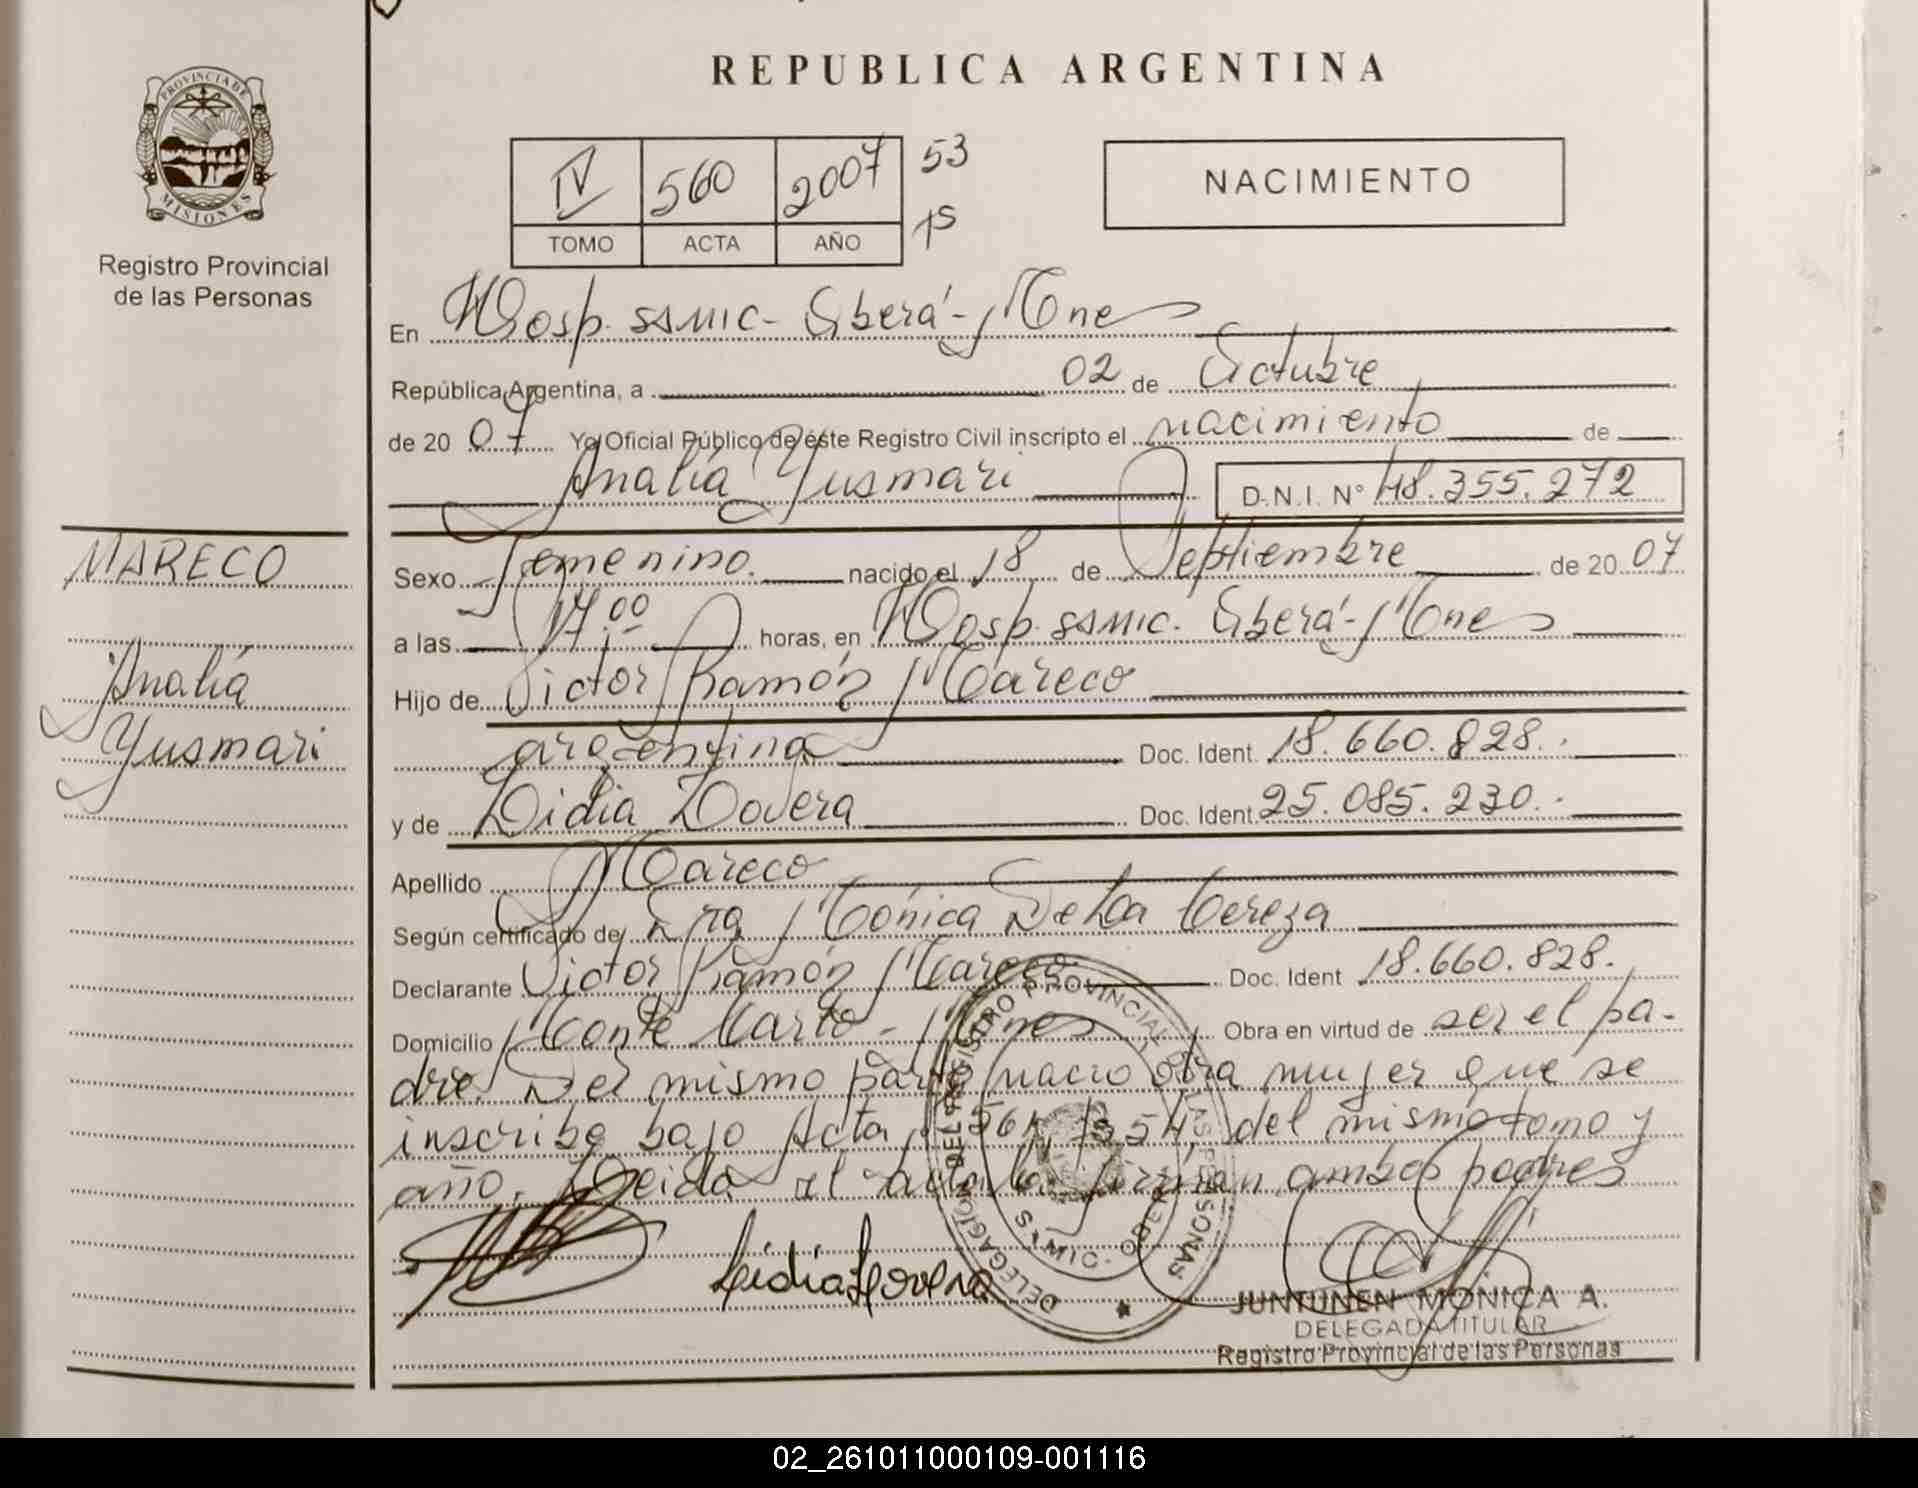 REPUBLICA ARGENTINA
PROVINCIA DE
MISIONES
Registro Provincial
de las Personas
IV 560 2007 53
15
TOMO ACTA AÑO
NACIMIENTO
En Hosp. SAMIC - Oberá - Mnes
República Argentina, a 02 de Octubre
de 20 07 Yo Oficial Público de éste Registro Civil inscripto el nacimiento de
Analía Yusmari D.N.I. N° 48.355.272
MARECO
Analía
Yusmari
Sexo Femenino. nacido el 18 de Septiembre de 20 07
a las 17.00 horas, en Hosp. SAMIC. Oberá - Mnes
Hijo de Victor Ramón Mareco
argentina Doc. Ident. 18.660.828.
y de Lidia Lovera Doc. Ident. 25.085.230.
Apellido Mareco
Según certificado de Dra Mónica De La Cereza
Declarante Victor Ramón Mareco Doc. Ident 18.660.828.
Domicilio Monte Carlo - Mnes Obra en virtud de ser el pa-
dre. Del mismo parto nacio otra mujer que se
inscribe bajo Acta 561 del mismo tomo y
año. Leida el acta la firman ambos padres
Lidia Lovera
DELEGACIÓN DEL REGISTRO PROVINCIAL DE LAS PERSONAS
SAMIC - OBERÁ
JUNTUNEN MONICA A.
DELEGADA TITULAR
Registro Provincial de las Personas
02_261011000109-001116